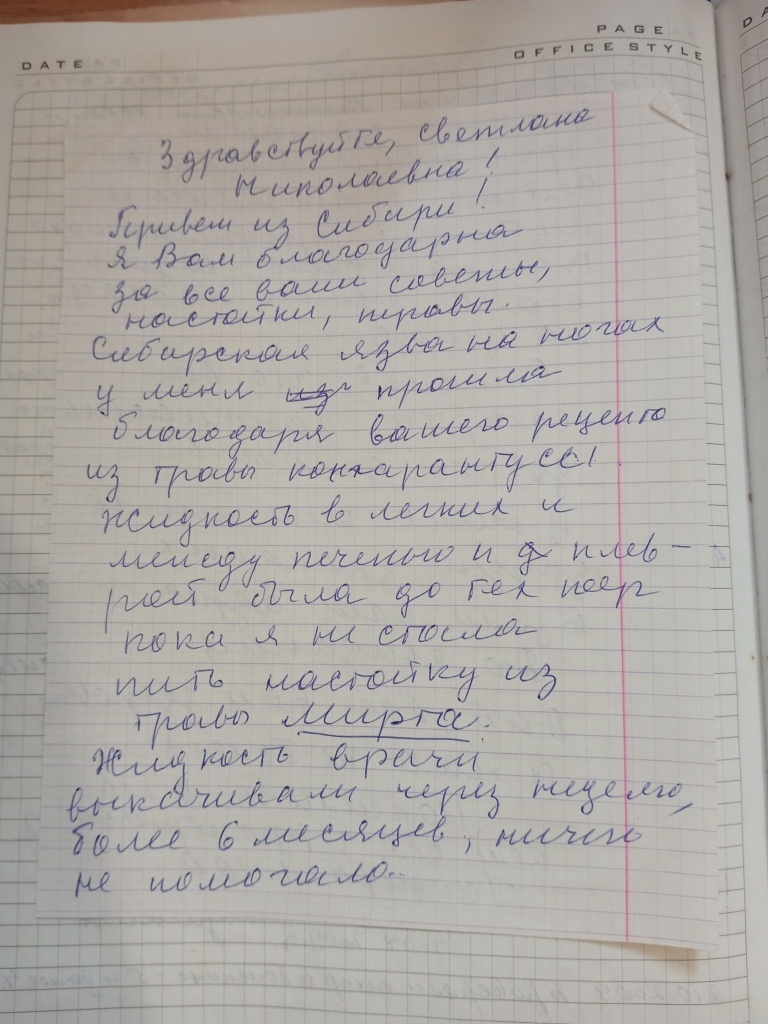 DATE
PAGE
OFFICE STYLE
Здравствуйте, Светлана
Николаевна!
Привет из Сибири!
Я Вам благодарна
за все ваши советы,
настойки, травы.
Сибирская язва на ногах
у меня прошла
благодаря вашего рецепта
из травы
Жидкость в легких и
между печенью и плев-
рой была до тех пор
пока я не стала
пить настойку из
травы Мирта.
Жидкость врачи
выкачивали через неделю,
более 6 месяцев, ничего
не помогало..